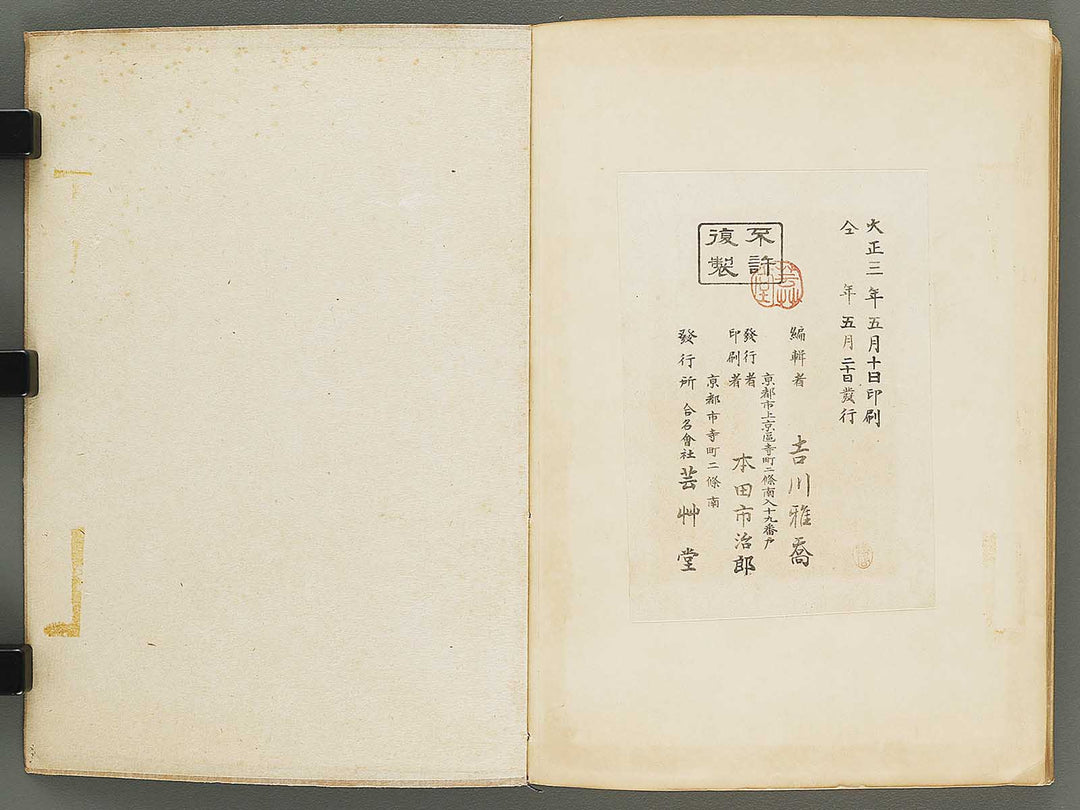 大正三年五月十日印刷
仝年五月二十日發行
不許
復製
芸艸堂
編輯者 吉川雅喬
京都市上京區寺町二條南入十九番戸
發行者
印刷者 本田市治郎
京都市寺町二條南
發行所 合名會社 芸艸堂